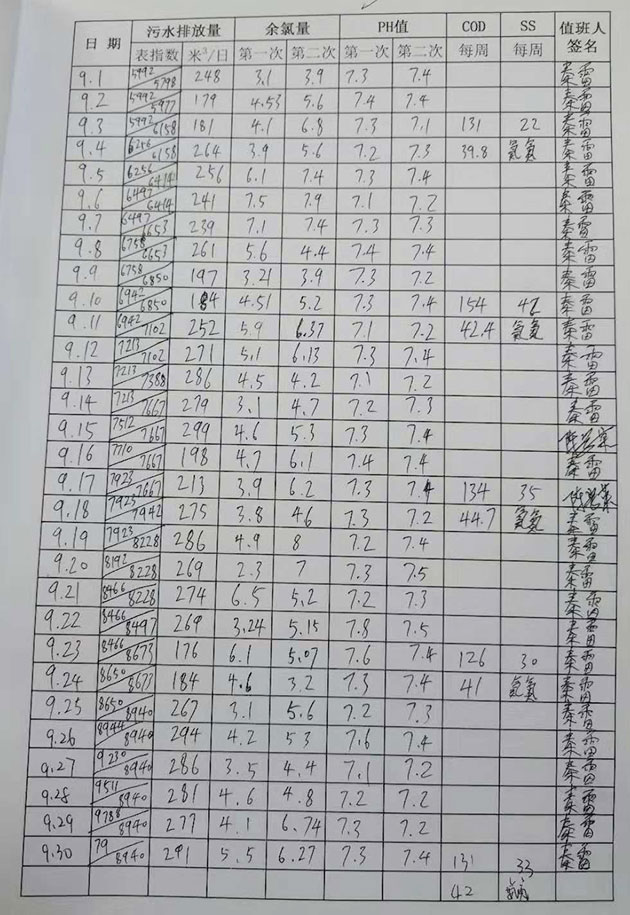 日期 污水排放量 余氯量 PH值 COD SS 值班人签名
表指数 米³/日 第一次 第二次 第一次 第二次 每周 每周
9.1 5992/5798 248 3.1 3.9 7.3 7.4 秦雷
9.2 5992/5977 179 4.53 5.6 7.4 7.4 秦雷
9.3 5992/6158 181 4.1 6.8 7.3 7.1 131 22 秦雷
9.4 6256/6158 264 3.9 5.6 7.2 7.3 39.8 氨氮 秦雷
9.5 6256/6414 256 6.1 7.4 7.3 7.4 秦雷
9.6 6492/6414 241 7.5 7.9 7.1 7.2 秦雷
9.7 6497/6653 239 7.1 7.4 7.3 7.3 秦雷
9.8 6758/6653 261 5.6 4.4 7.4 7.4 秦雷
9.9 6758/6850 197 3.21 3.9 7.3 7.2 秦雷
9.10 6942/6850 184 4.51 5.2 7.3 7.4 154 42 秦雷
9.11 6942/7102 252 5.9 6.37 7.1 7.2 42.4 氨氮 秦雷
9.12 7213/7102 271 5.1 6.13 7.1 7.4 秦雷
9.13 7213/7388 286 4.5 4.2 7.1 7.2 秦雷
9.14 7213/7667 279 3.1 4.7 7.2 7.3 秦雷
9.15 7512/7667 299 4.6 5.3 7.3 7.4
9.16 7710/7667 198 4.7 6.1 7.4 7.4 秦雷
9.17 7923/7667 213 3.9 6.2 7.3 7.4 134 35
9.18 7923/7942 275 3.8 46 7.3 7.2 44.7 氨氮 秦雷
9.19 7923/8228 286 4.9 8 7.2 7.4 秦雷
9.20 8192/8228 269 2.3 7 7.3 7.5 秦雷
9.21 8466/8228 274 6.5 5.2 7.2 7.3 秦雷
9.22 8466/8497 269 3.24 5.15 7.8 7.5 秦雷
9.23 8466/8673 176 6.1 5.07 7.6 7.4 126 30 秦雷
9.24 8650/8673 184 4.6 3.2 7.3 7.4 41 氨氮 秦雷
9.25 8650/8940 267 3.1 5.6 7.2 7.3 秦雷
9.26 8944/8940 294 4.2 53 7.6 7.4 秦雷
9.27 9230/8940 286 3.5 4.4 7.1 7.2 秦雷
9.28 9511/8940 281 4.6 4.8 7.2 7.2 秦雷
9.29 9788/8940 277 4.1 6.74 7.3 7.2 秦雷
9.30 79/8940 291 5.5 6.27 7.3 7.4 131 33 秦雷
42 氨氮